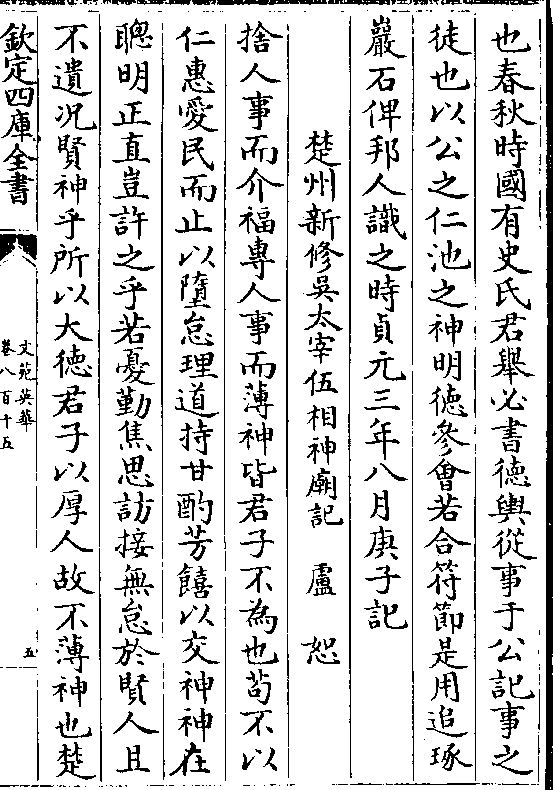 也春秋時國有史氏君舉必書德輿從事于公記事之
徒也以公之仁池之神明德參會若合符節是用追琢
巖石俾邦人識之時貞元三年八月庚子記
楚州新修吳太宰伍相神廟記 盧恕
捨人事而介福專人事而薄神皆君子不為也苟不以
仁惠愛民而止以墮怠理道持甘酌芳饎以交神神在
聰明正直豈許之乎若憂勤焦思訪接無怠於賢人且
不遺况賢神乎所以大德君子以厚人故不薄神也楚
欽定四庫全書
文苑英華
卷八百十五
五